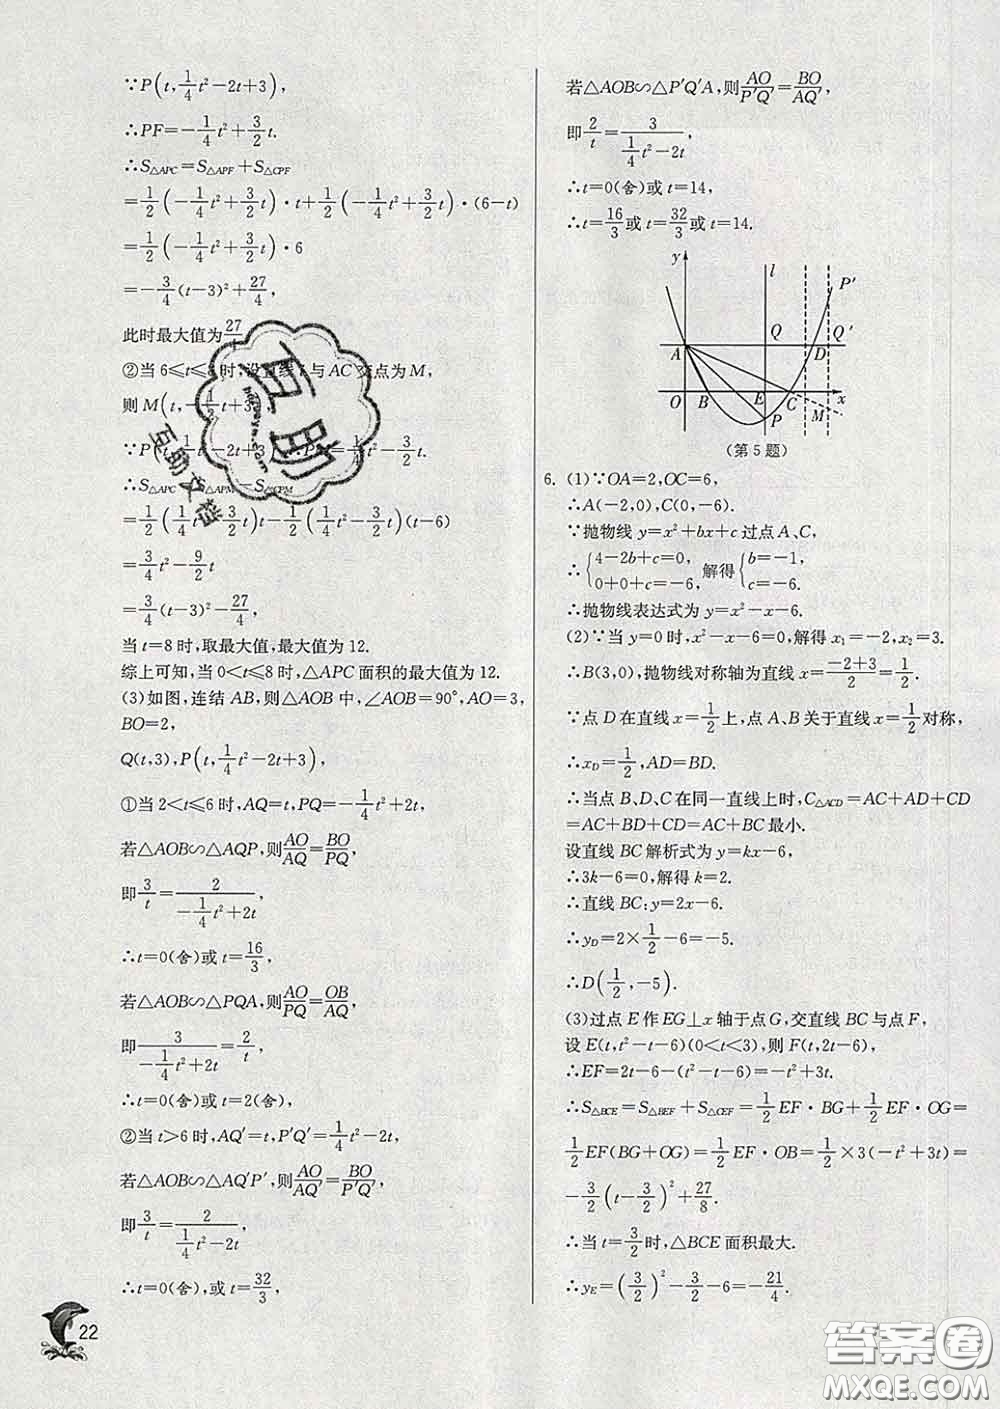 ∵P(t,1/4t²-2t+3),
∴PF=-1/4t²+3/2t.
∴S△APC=S△APF+S△CPF
=1/2(-1/4t²+3/2t)·t+1/2(-1/4t²+3/2t)·(6-t)
=1/2(-1/4t²+3/2t)·6
=-3/4(t-3)²+27/4,
此时最大值为27
②当6≤t≤ 时,设直线l与AC交点为M,
则M(t,-1/2t+3),
∵P t²-3/2t.
∴S△APC=S△APM-S△CPM
=1/2(1/4t²-3/2t)t-1/2(1/4t²-3/2t)(t-6)
=3/4t²-9/2t
=3/4(t-3)²-27/4,
当t=8时,取最大值,最大值为12.
综上可知,当0<t≤8时,△APC面积的最大值为12.
(3)如图,连结AB,则△AOB中,∠AOB=90°,AO=3,
BO=2,
Q(t,3),P(t,1/4t²-2t+3),
①当2<t≤6时,AQ=t,PQ=-1/4t²+2t,
若△AOB∽△AQP,则AO/AQ=BO/PQ,
即3/t=2/(-1/4t²+2t)
∴t=0(舍)或t=16/3,
若△AOB∽△PQA,则AO/PQ=OB/AQ,
即3/(-1/4t²+2t)=2/t,
∴t=0(舍)或t=2(舍),
②当t>6时,AQ′=t,P′Q′=1/4t²-2t,
若△AOB∽△AQ′P′,则AO/AQ′=BO/P′Q′,
即3/t=2/(1/4t²-2t)
∴t=0(舍),或t=32/3,
22
若△AOB∽△P′Q′A,则AO/P′Q′=BO/AQ′,
即2/t=3/(1/4t²-2t),
∴t=0(舍)或t=14,
∴t=16/3或t=32/3或t=14.
y
l
P′
Q
Q′
A
D
O
B
E
C
x
M
P
(第5题)
6. (1)∵OA=2,OC=6,
∴A(-2,0),C(0,-6).
∵抛物线y=x²+bx+c过点A、C,
∴{4-2b+c=0, 0+0+c=-6, 解得{b=-1, c=-6.
∴抛物线表达式为y=x²-x-6.
(2)∵当y=0时,x²-x-6=0,解得x₁=-2,x₂=3.
∴B(3,0),抛物线对称轴为直线x=(-2+3)/2=1/2.
∵点D在直线x=1/2上,点A、B关于直线x=1/2对称,
∴x_D=1/2,AD=BD.
∴当点B、D、C在同一直线上时,C△ACD=AC+AD+CD
=AC+BD+CD=AC+BC最小.
设直线BC解析式为y=kx-6,
∴3k-6=0,解得k=2.
∴直线BC:y=2x-6.
∴y_D=2×1/2-6=-5.
∴D(1/2,-5).
(3)过点E作EG⊥x轴于点G,交直线BC与点F,
设E(t,t²-t-6)(0<t<3),则F(t,2t-6),
∴EF=2t-6-(t²-t-6)=-t²+3t.
∴S△BCE=S△BEF+S△CEF=1/2EF·BG+1/2EF·OG=
1/2EF(BG+OG)=1/2EF·OB=1/2×3(-t²+3t)=
-3/2(t-3/2)²+27/8.
∴当t=3/2时,△BCE面积最大.
∴y_E=(3/2)²-3/2-6=-21/4.
互助
互助文档
答案圈
MXQE.COM